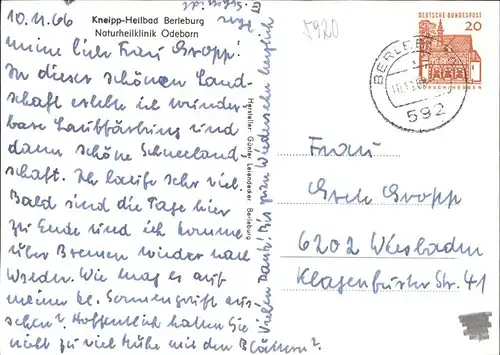 10.11.66
Kneipp-Heilbad Berleburg
Naturheilklinik Odeborn
5920
Meine liebe Frau Gropp!
In dieser schönen Land-
schaft erlebe ich wunder-
bare Laubfärbung und
dann schöne Schneeland-
schaft. Ich laufe sehr viel.
Bald sind die Tage hier
zu Ende und ich komme
über Bremen wieder nach
Wie mag es auf
meiner kl. Sonnengruft aus-
sehen? Hoffentlich haben Sie
nicht zu viel Mühe mit den Blättern?
Vielen Dank! Bis zum Wiedersehen herzlich
Ihre
Hersteller: Günter Leiendecker, Berleburg
DEUTSCHE BUNDESPOST
20
LORSCH/HESSEN
BERLEBURG
592
Frau
Grete Gropp
6202 Wiesbaden
Klagenfurter Str. 41